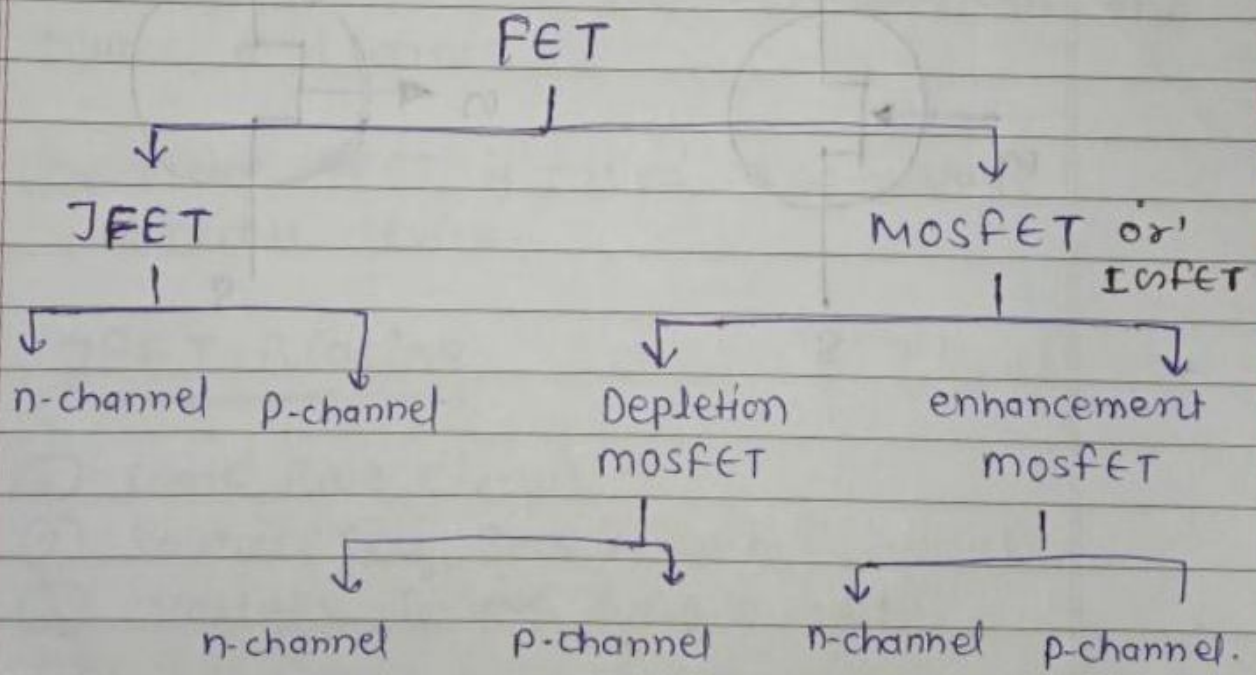 FET
JFET MOSFET or
ISFET
n-channel p-channel Depletion enhancement
MOSFET MOSFET
n-channel p-channel n-channel p-channel.